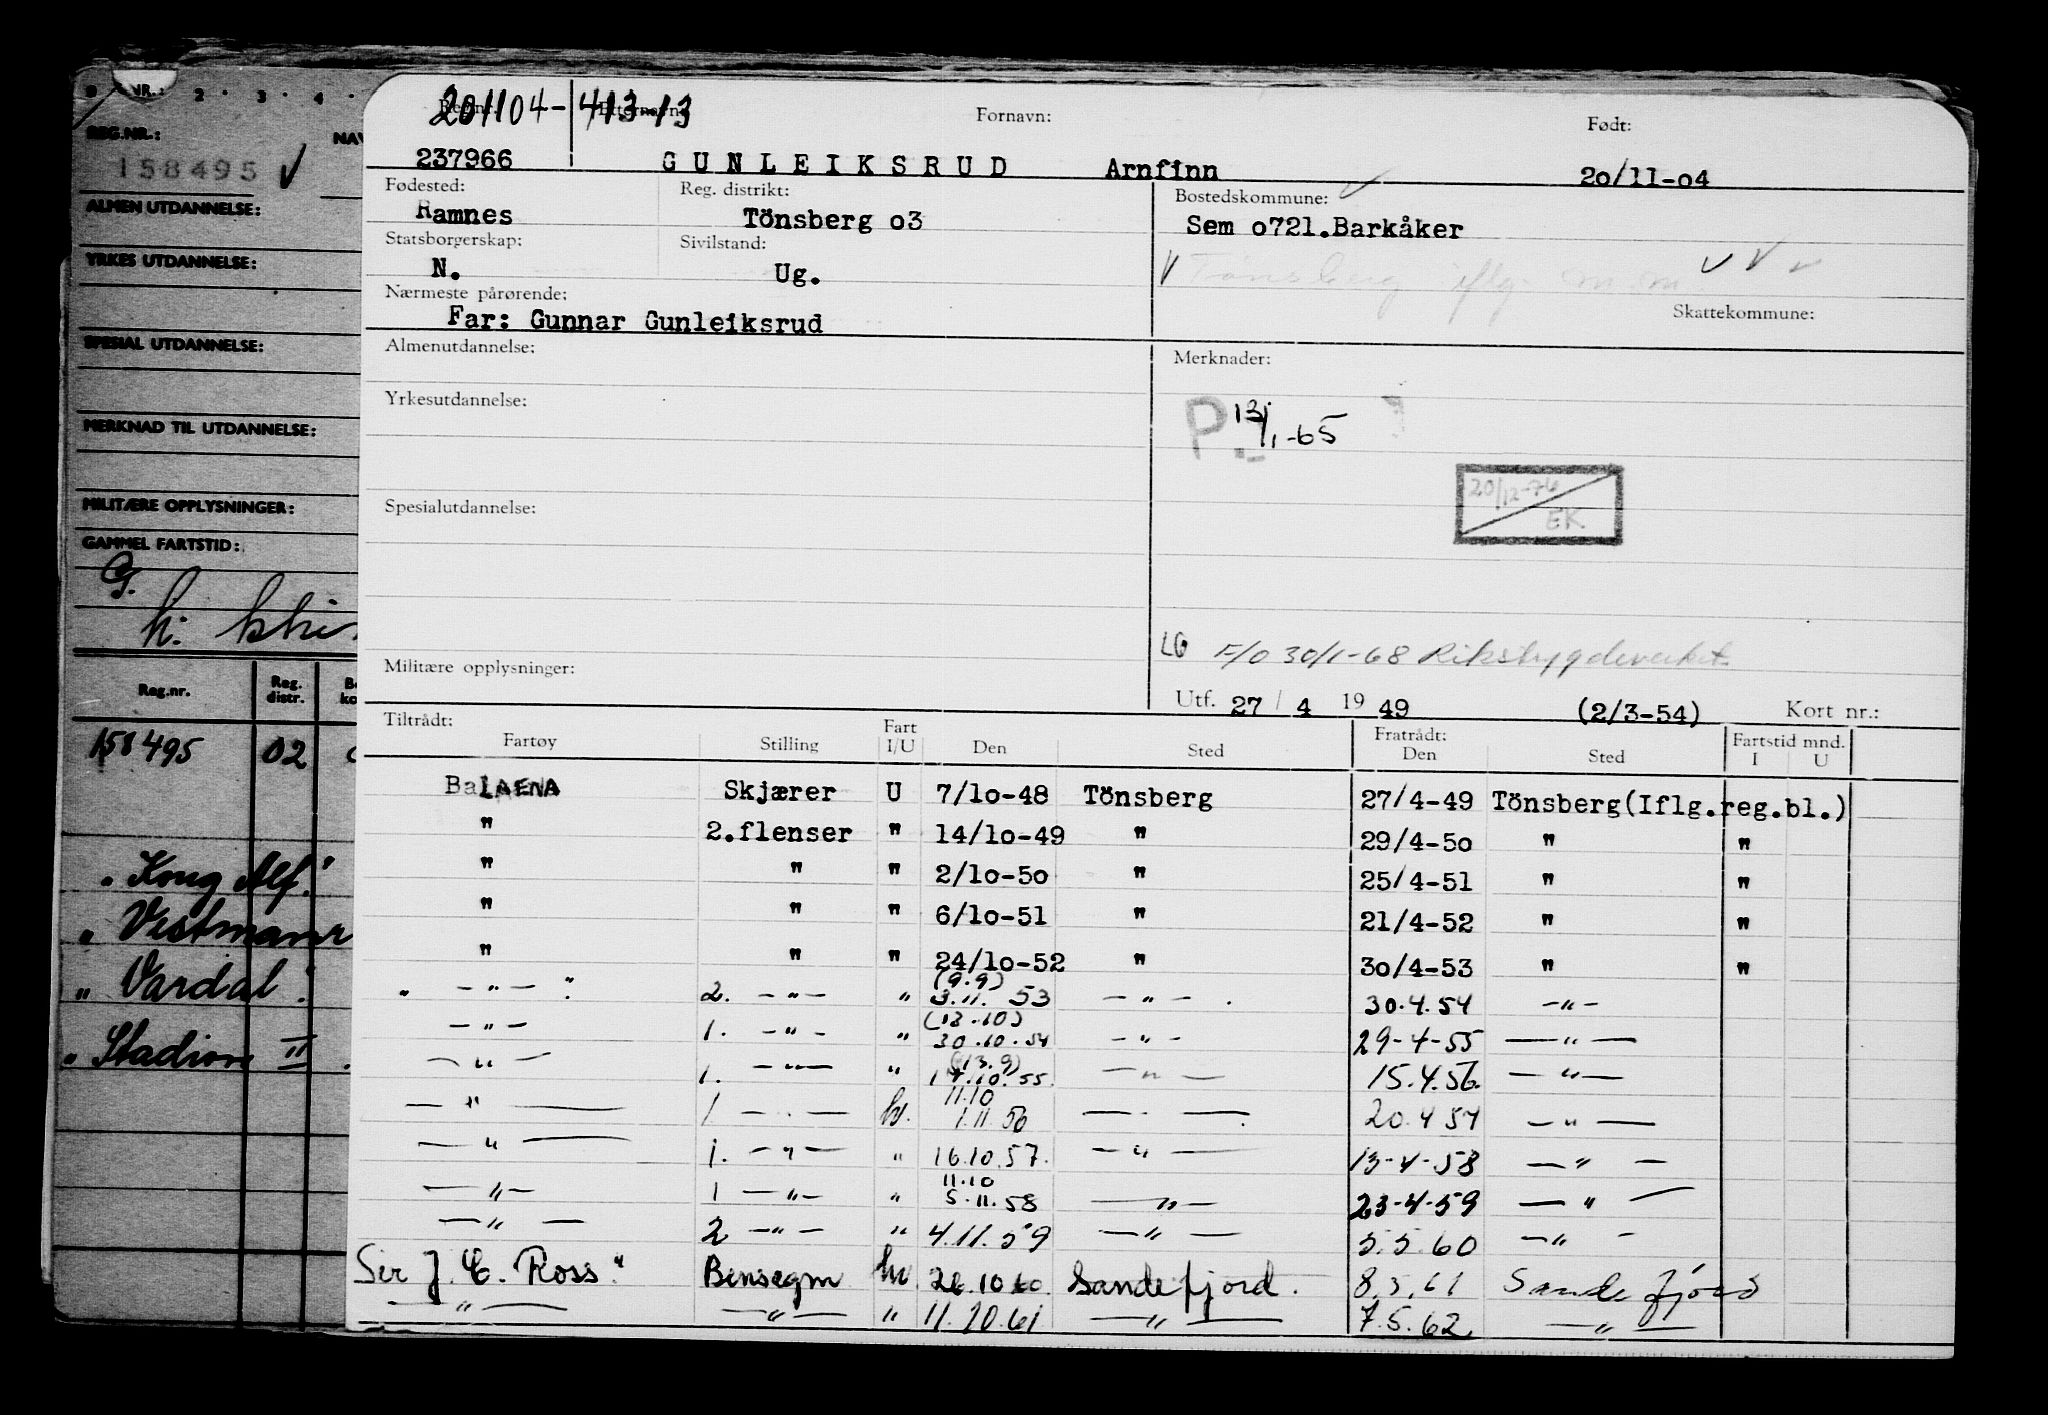 NR.: 2 · 3 · 4 ·
REG.NR.:
158495
ALMEN UTDANNELSE:
YRKES UTDANNELSE:
SPESIAL UTDANNELSE:
MERKNAD TIL UTDANNELSE:
MILITÆRE OPPLYSNINGER:
GAMMEL FARTSTID:
G.
h:
Reg.nr. Reg. distr.
158495 02
" Kong Alf."
"
" Vardal".
" Stadion II".
201104-41313
Fornavn: Født:
237966 GUNLEIKSRUD Arnfinn 20/11-04
Fødested: Reg. distrikt: Bostedskommune:
Ramnes Tönsberg o3 Sem o721.Barkåker
Statsborgerskap: Sivilstand:
N. Ug.
Tønsberg iflg. m.m.
Nærmeste pårørende: Skattekommune:
Far: Gunnar Gunleiksrud
Almenutdannelse: Merknader:
Yrkesutdannelse:
P 13/1-65
20/12-76
EK.
Spesialutdannelse:
LG F/O 30/1-68 Rikstrygdeverket
Militære opplysninger:
Utf. 27 / 4 19 49 (2/3-54) Kort nr.:
Tiltrådt: Fart Fratrådt: Fartstid mnd.
Fartøy Stilling I/U Den Sted Den Sted I U
BaLAENA Skjærer U 7/10-48 Tönsberg 27/4-49 Tönsberg(Iflg.reg.bl.)
" 2.flenser " 14/10-49 " 29/4-50 " "
" " " 2/10-50 " 25/4-51 " "
" " " 6/10-51 " 21/4-52 " "
" " " 24/10-52 " 30/4-53 " "
(9.9)
" — " — " 2. — " — " 3.11. 53 — " — . 30.4.54 — " —
(13.10)
— " — 1. — " — " 30.10.54 — " — 29-4-55 — " —
(13.9)
— " — 1. — " — " 17.10.55. — " — 15.4.56. — " —
11.10
— " — 1 — " — hv. 1.11.56 — " — 20.4 57 — " —
— " — 1. — " — " 16.10.57. — " — 13-4-58 — " —
11.10
— " — 1 — " — " 5.11.58 — " — 23-4-59 — " —
— " — 2 — " — " 4.11.59 — " — 5.5.60 — " —
Sir J. C. Ross." Bensagm hv. 26.10.60. Sandefjord. 8.5.61 Sandefjord
— " — — " — " 11.10.61 — " — 7.5.62. — " —